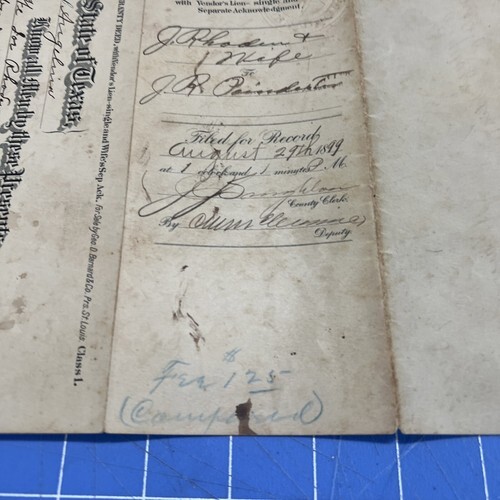 with Vendor's Lien - single and
Separate Acknowledgment
J. Rhoden &
Wife
To
J. R. Poindexter
Filed for Record
August 29th 1899
at 1 o'clock and 1 minutes P. M.
County Clerk
By
Deputy.
Fee $1 25
(Compared)
State of Texas,
Angelina
Know all Men by these Presents
WARRANTY DEED, with Vendor's Lien - single and Wife's Sep. Ack. For Sale by Geo. D. Barnard & Co. Prs. St. Louis. Class 1.